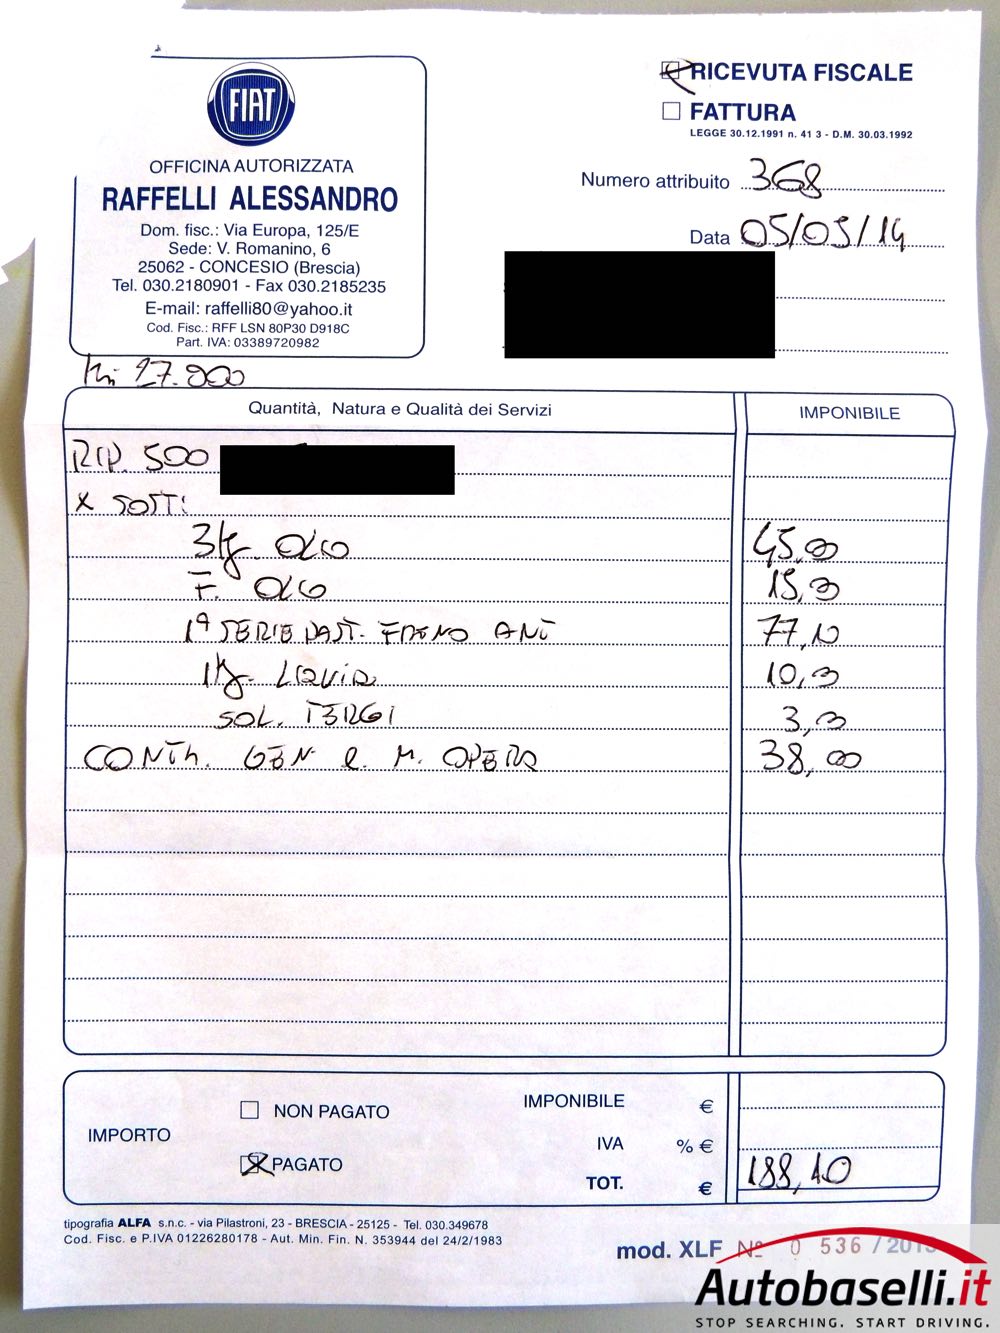 FIAT
OFFICINA AUTORIZZATA
RAFFELLI ALESSANDRO
Dom. fisc.: Via Europa, 125/E
Sede: V. Romanino, 6
25062 - CONCESIO (Brescia)
Tel. 030.2180901 - Fax 030.2185235
E-mail: raffelli80@yahoo.it
Cod. Fisc.: RFF LSN 80P30 D918C
Part. IVA: 03389720982
RICEVUTA FISCALE
FATTURA
LEGGE 30.12.1991 n. 41 3 - D.M. 30.03.1992
Numero attribuito 368
Data 05/05/14
27.000
Quantità, Natura e Qualità dei Servizi IMPONIBILE
RIP. 500
X SOST:
3 Kg. OLIO 45,00
F. OLIO 15,00
1ª SERIE PAST. FRENO ANT 77,10
1 Kg. LIQUIDO 10,00
SOL. TERGI 3,00
CONTR. GEN E M. OPERA 38,00
IMPORTO
NON PAGATO
PAGATO
IMPONIBILE €
IVA % €
TOT. € 188,10
tipografia ALFA s.n.c. - via Pilastroni, 23 - BRESCIA - 25125 - Tel. 030.349678
Cod. Fisc. e P.IVA 01226280178 - Aut. Min. Fin. N. 353944 del 24/2/1983
mod. XLF № 0 536 / 2013
Autobaselli.it
STOP SEARCHING. START DRIVING.